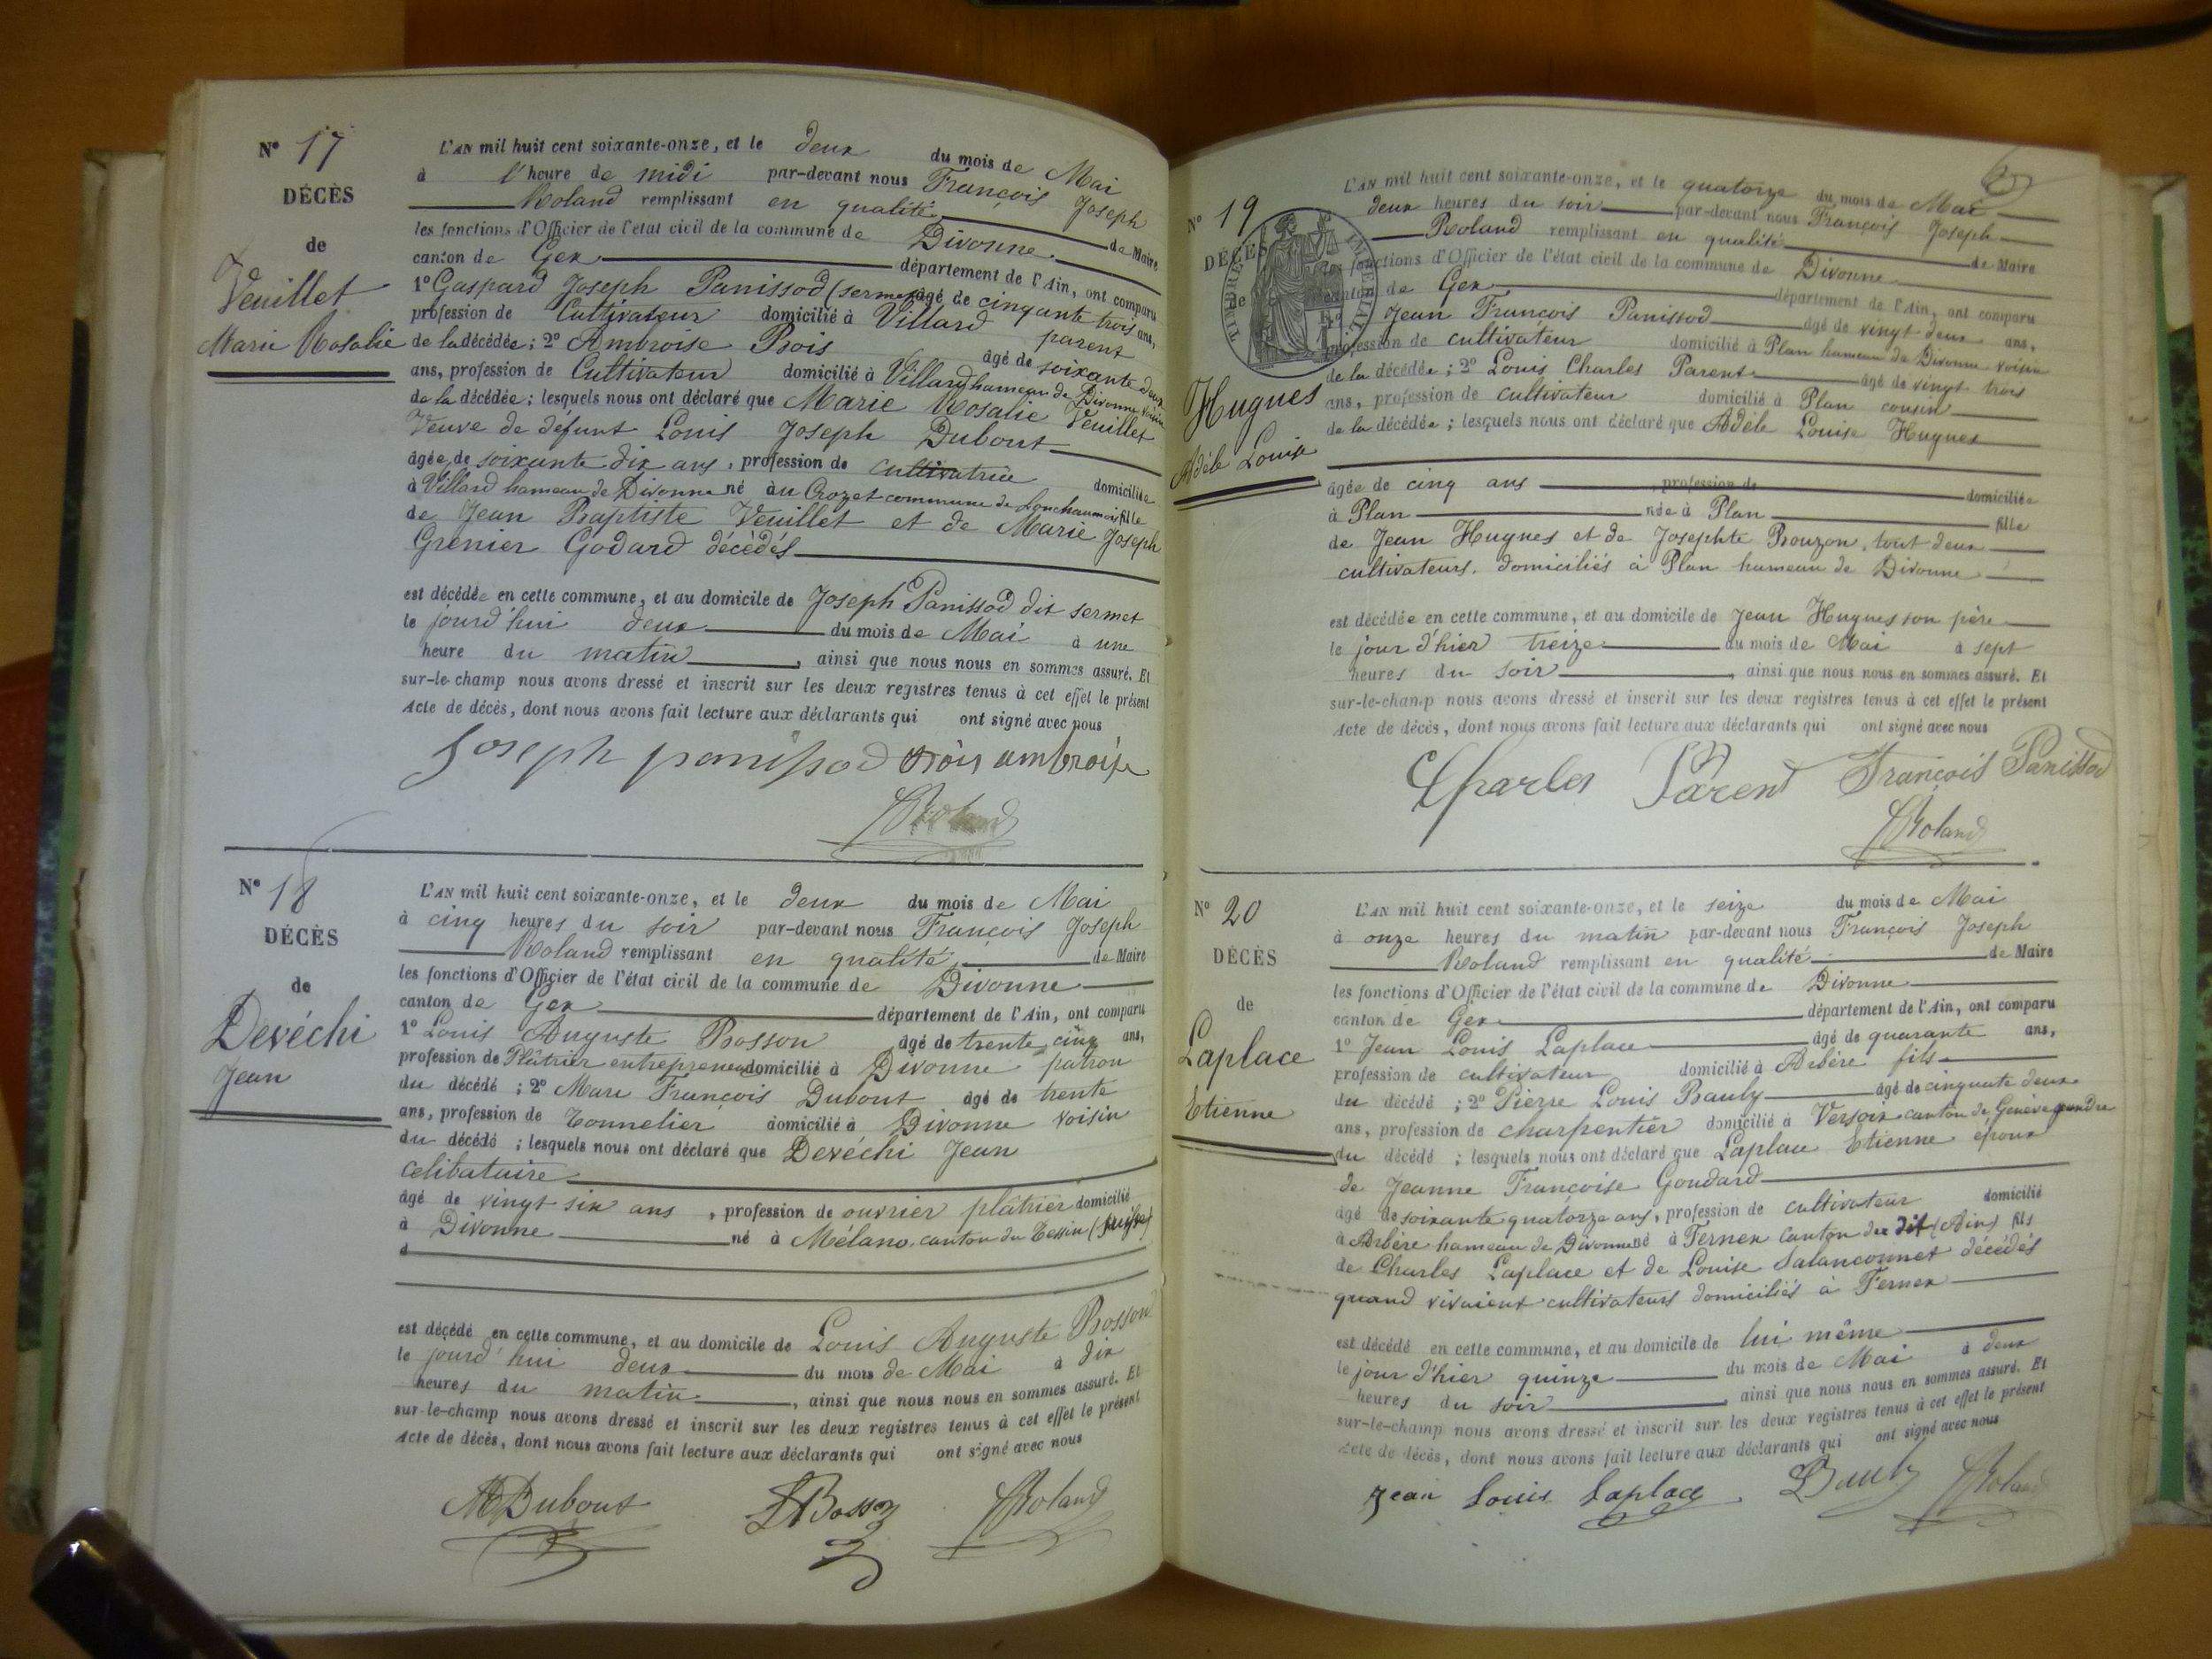 N° 17
DÉCÈS
de
Veuillet
Marie Rosalie
L'AN mil huit cent soixante-onze, et le deux du mois de Mai
à l'heure de midi par-devant nous François Joseph
Roland remplissant en qualité de Maire
les fonctions d'Officier de l'état civil de la commune de Divonne
canton de Gex département de l'Ain, ont comparu
1° Gaspard Joseph Panissod (sermet) âgé de cinquante trois ans,
profession de Cultivateur domicilié à Villard parent
de la décédée ; 2° Ambroise Bois âgé de soixante deux
ans, profession de Cultivateur domicilié à Villard hameau de Divonne voisin
de la décédée ; lesquels nous ont déclaré que Marie Rosalie Veuillet
Veuve de défunt Louis Joseph Dubout
âgée de soixante dix ans, profession de cultivatrice domiciliée
à Villard hameau de Divonne né au Crozet commune de Lonchaumois fille
de Jean Baptiste Veuillet et de Marie Joseph
Grenier Godard décédés
est décédée en cette commune, et au domicile de Joseph Panissod dit sermet
le jourd'hui deux du mois de Mai à une
heure du matin, ainsi que nous nous en sommes assuré. Et
sur-le-champ nous avons dressé et inscrit sur les deux registres tenus à cet effet le présent
Acte de décès, dont nous avons fait lecture aux déclarants qui ont signé avec nous
Joseph panissod Bois ambroise
Roland
N° 18
DÉCÈS
de
Devéchi
Jean
L'AN mil huit cent soixante-onze, et le deux du mois de Mai
à cinq heures du soir par-devant nous François Joseph
Roland remplissant en qualité de Maire
les fonctions d'Officier de l'état civil de la commune de Divonne
canton de Gex département de l'Ain, ont comparu
1° Louis Auguste Bosson âgé de trente cinq ans,
profession de Plâtrier entrepreneur domicilié à Divonne patron
du décédé ; 2° Marc François Dubout âgé de trente
ans, profession de Tonnelier domicilié à Divonne voisin
du décédé ; lesquels nous ont déclaré que Devéchi Jean
celibataire
âgé de vingt six ans, profession de ouvrier plâtrier domicilié
à Divonne né à Mélano, canton du Tessin (suisse)
d
est décédé en cette commune, et au domicile de Louis Auguste Bosson
le jourd'hui deux du mois de Mai à dix
heures du matin, ainsi que nous nous en sommes assuré. Et
sur-le-champ nous avons dressé et inscrit sur les deux registres tenus à cet effet le présent
Acte de décès, dont nous avons fait lecture aux déclarants qui ont signé avec nous
Dubout Bosson Roland
N° 19
DÉCÈS
de
Hugues
Adèle Louise
TIMBRE IMPÉRIAL
L'AN mil huit cent soixante-onze, et le quatorze du mois de Mai
deux heures du soir par-devant nous François Joseph
Roland remplissant en qualité de Maire
les fonctions d'Officier de l'état civil de la commune de Divonne
canton de Gex département de l'Ain, ont comparu
1° Jean François Panissod âgé de vingt-deux ans,
profession de cultivateur domicilié à Plan hameau de Divonne voisin
de la décédée ; 2° Louis Charles Parent âgé de vingt trois
ans, profession de cultivateur domicilié à Plan cousin
de la décédée ; lesquels nous ont déclaré que Adèle Louise Hugues
âgée de cinq ans profession de domiciliée
à Plan née à Plan fille
de Jean Hugues et de Josephte Bouzon, tout deux
cultivateurs, domiciliés à Plan hameau de Divonne
est décédée en cette commune, et au domicile de Jean Hugues son père
le jour d'hier treize du mois de Mai à sept
heures du soir, ainsi que nous nous en sommes assuré. Et
sur-le-champ nous avons dressé et inscrit sur les deux registres tenus à cet effet le présent
Acte de décès, dont nous avons fait lecture aux déclarants qui ont signé avec nous
Charles Parent François Panissod
Roland
N° 20
DÉCÈS
de
Laplace
Etienne
L'AN mil huit cent soixante-onze, et le seize du mois de Mai
à onze heures du matin par-devant nous François Joseph
Roland remplissant en qualité de Maire
les fonctions d'Officier de l'état civil de la commune de Divonne
canton de Gex département de l'Ain, ont comparu
1° Jean Louis Laplace âgé de quarante ans,
profession de cultivateur domicilié à Arbère fils
du décédé ; 2° Pierre Louis Bauly âgé de cinquante deux
ans, profession de charpentier domicilié à Versoix canton de Genève gendre
du décédé ; lesquels nous ont déclaré que Laplace Etienne époux
de Jeanne Françoise Goudard
âgé de soixante quatorze ans, profession de cultivateur domicilié
à Arbère hameau de Divonne né à Fernex canton du dit (Ain) fils
de Charles Laplace et de Louise Salanconnet décédés
quand vivaient cultivateurs domiciliés à Fernex
est décédé en cette commune, et au domicile de lui même
le jour d'hier quinze du mois de Mai à deux
heures du soir, ainsi que nous nous en sommes assuré. Et
sur-le-champ nous avons dressé et inscrit sur les deux registres tenus à cet effet le présent
Acte de décès, dont nous avons fait lecture aux déclarants qui ont signé avec nous
Jean Louis Laplace Bauly Roland